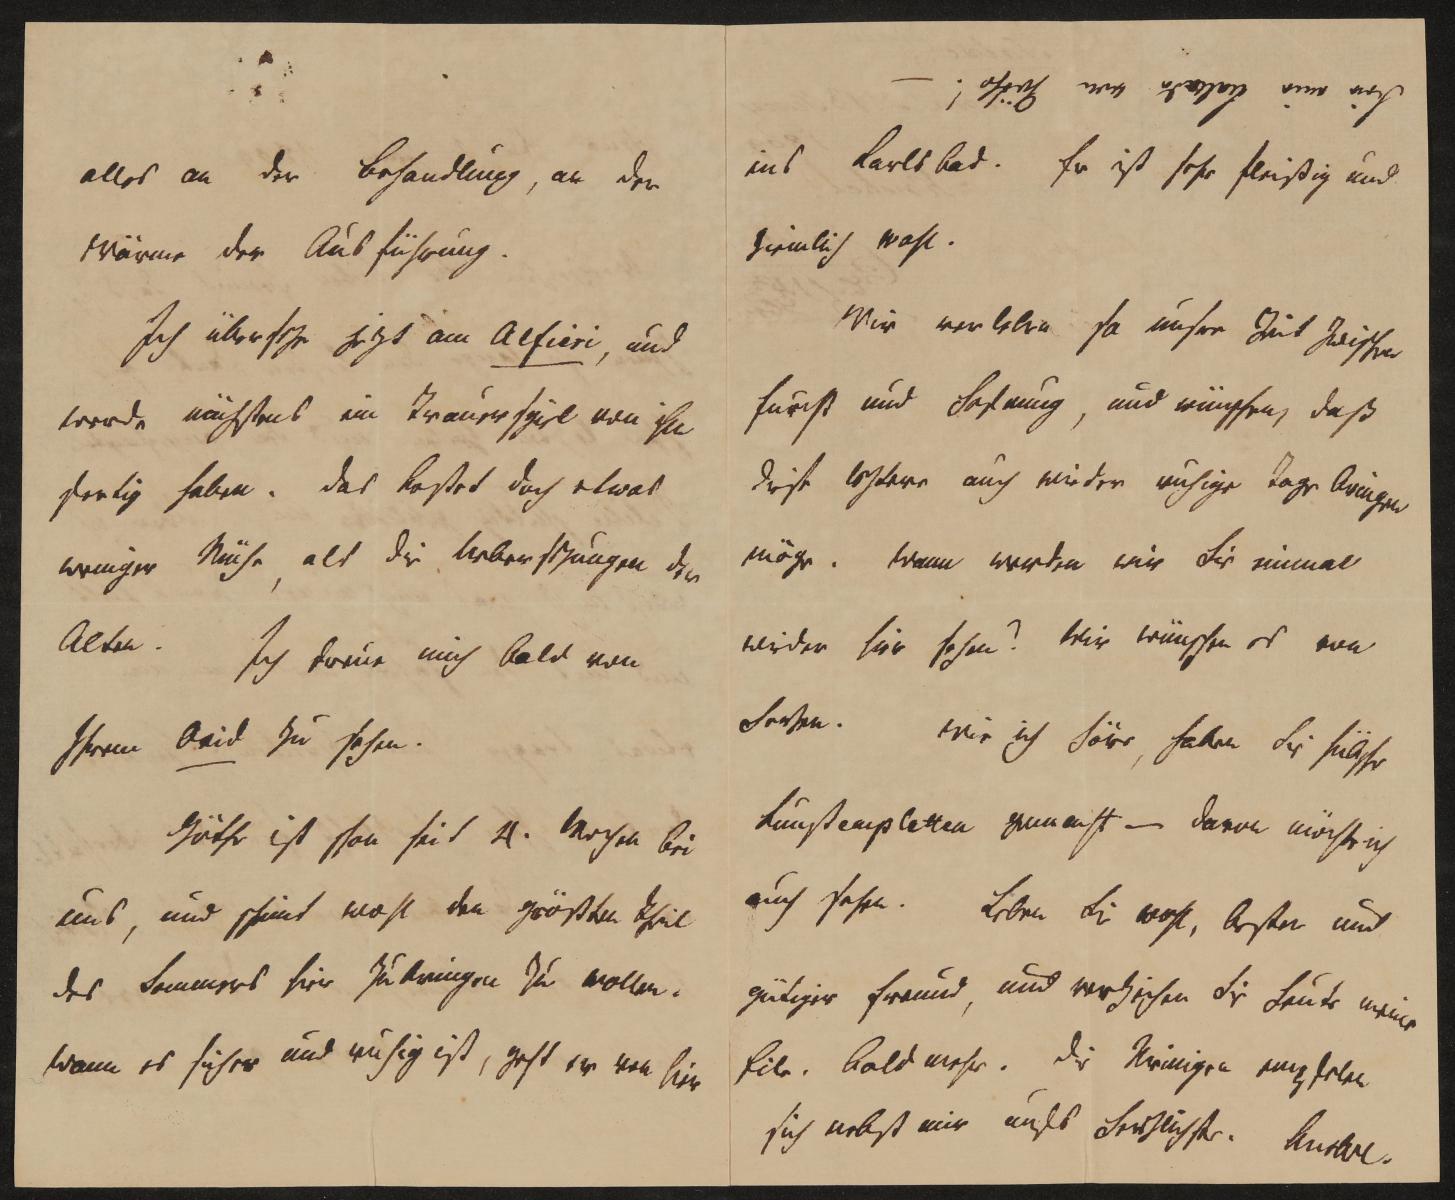 alles an der Behandlung, an der
Wärme der Ausführung.
Ich übersetze jetzt am Alfieri, und
werde nächstens ein Trauerspiel von ihm
fertig haben. Das kostet doch etwas
weniger Mühe, als die Uebersetzungen der
Alten. Ich freue mich bald von
Ihrem Ovid zu sehen.
Göthe ist schon seit 4. Wochen bei
uns, und scheint wohl den größten Theil
des Sommers hier zubringen zu wollen.
Wenn es sicher und ruhig ist, geht er von hier
ins Karlsbad. Er ist sehr fleißig und
ziemlich wohl.
Wir verleben so unsre Zeit zwischen
Furcht und Hofnung, und wünschen, daß
diese letztere auch wieder ruhige Tage bringen
möge. Wann werden wir Sie einmal
wieder hier sehen? Wir wünschen es von
Herzen. Wie ich höre, haben Sie hübsche
gemacht — davon möchte ich
auch sehen. Leben Sie wohl, bester und
gütiger Freund, und verzeihen Sie heute meine
Eile. Bald mehr. Die Meinigen empfelen
sich nebst mir aufs herzlichste. Knebel.
von Göthe! —